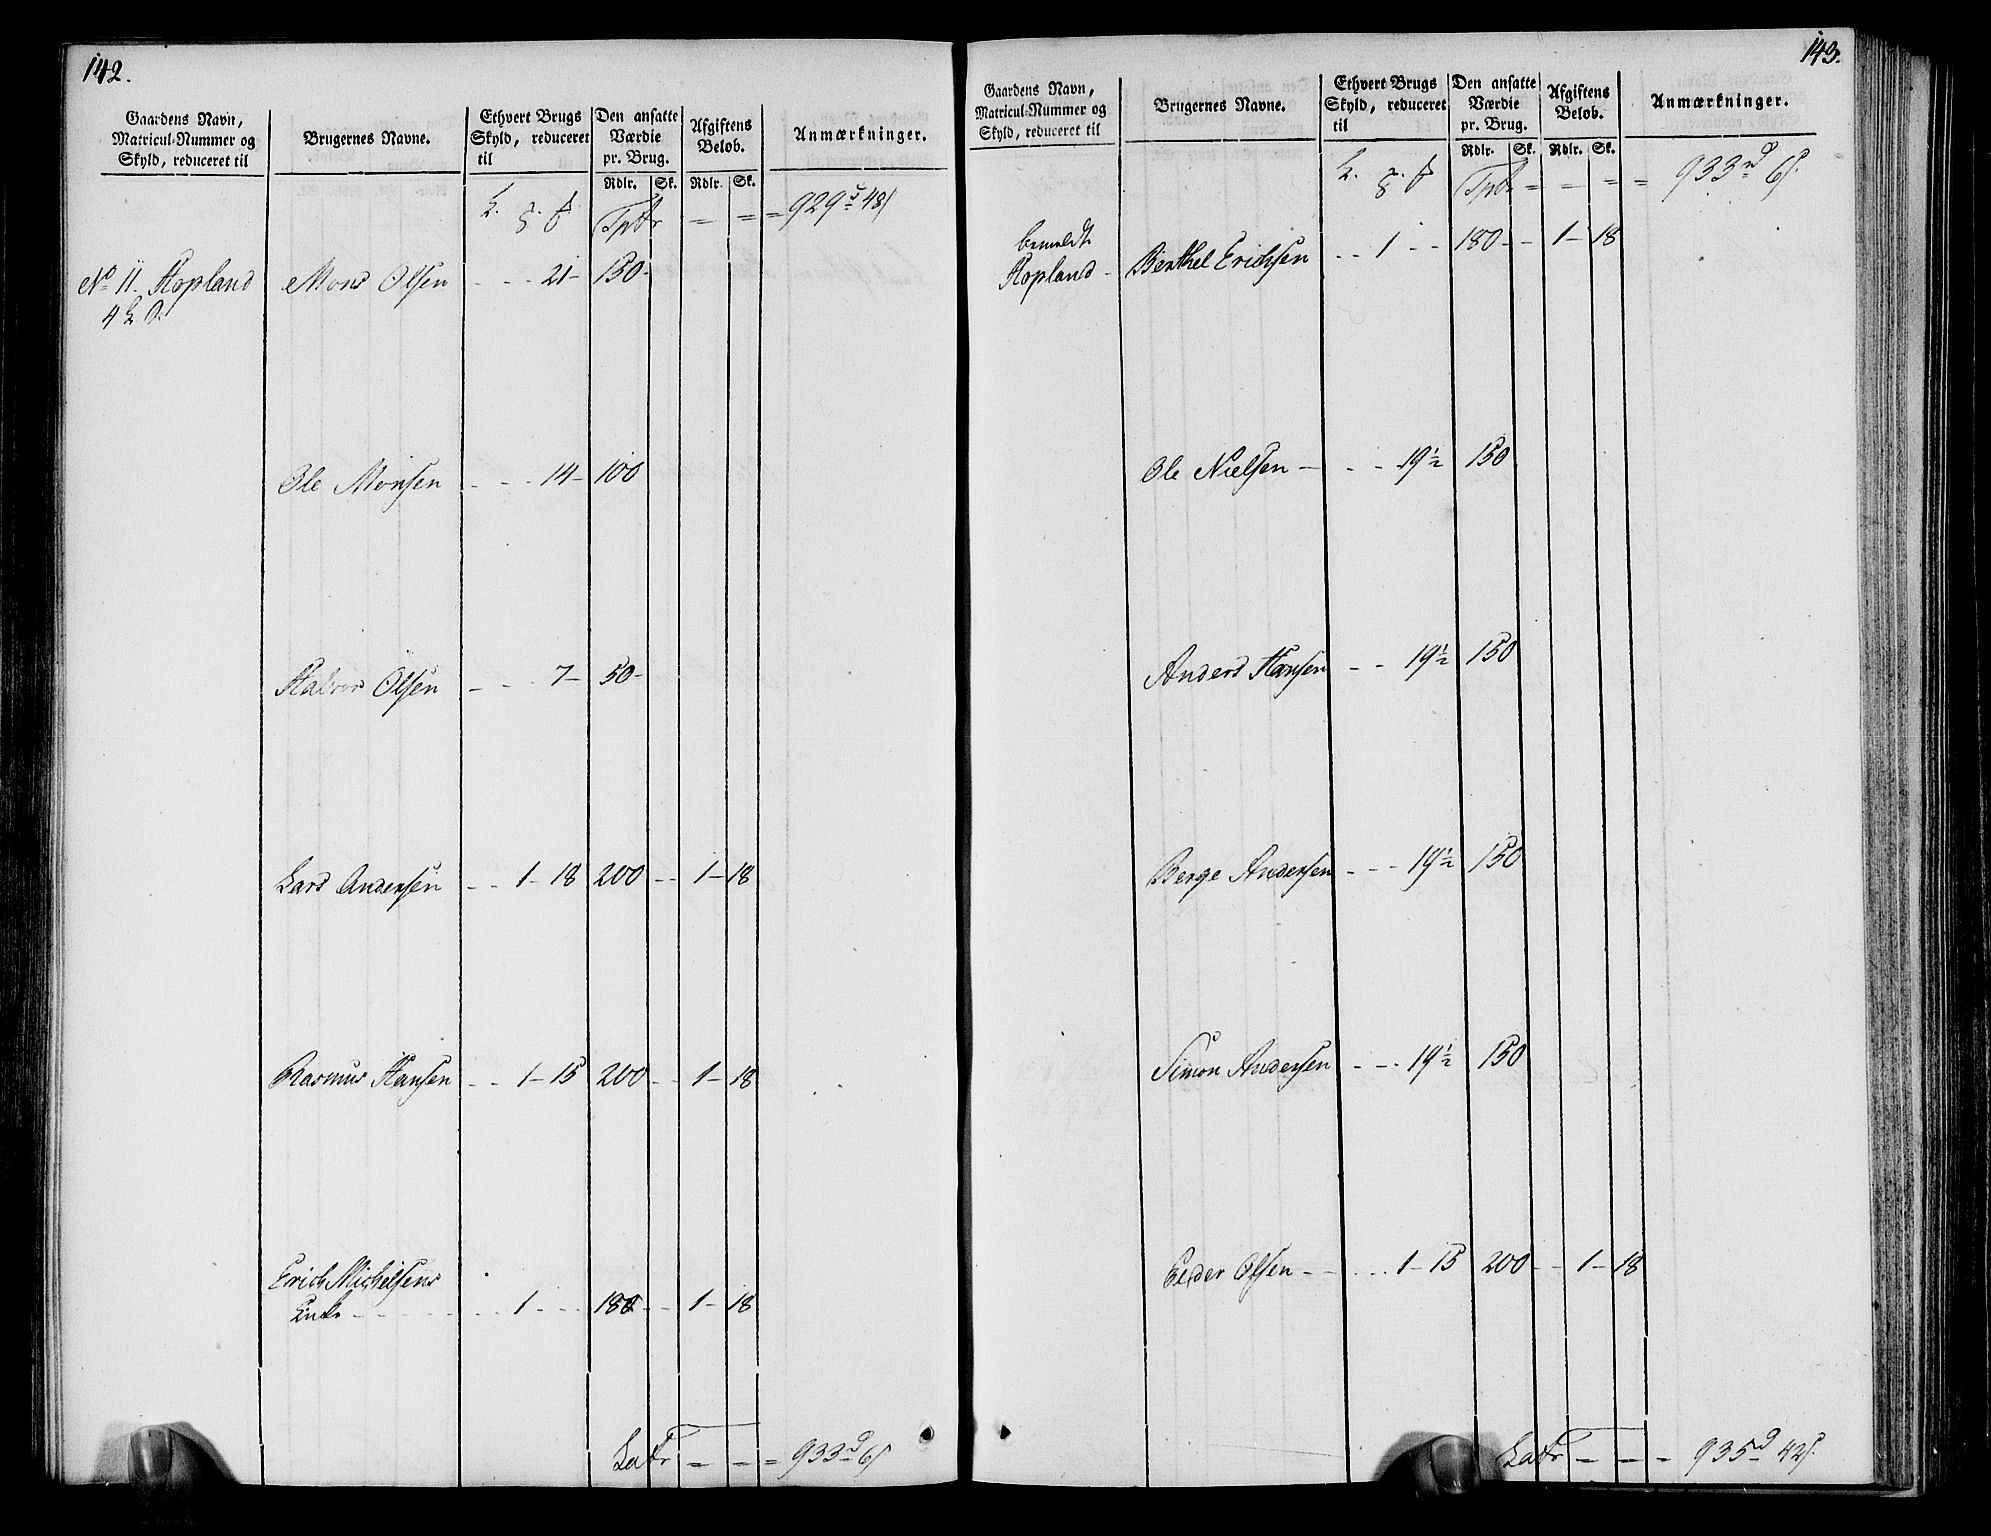 142.
Gaardens Navn,
Matricul-Nummer og
Skyld, reduceret til
Brugernes Navne.
Ethvert Brugs
Skyld, reduceret
til
Den ansatte
Værdie
pr. Brug.
Rdlr. Sk.
Afgiftens
Beløb.
Rdlr. Sk.
Anmærkninger.
Tptr = = = 929 48
No 11. Hopland Mons Olsen - - - 21 - 150 -
4
Ole Monsen - - - 14 - 100
Halvor Olsen - - - 7 - 50 -
Lars Andersen - - 1 - 18 200 - - 1 - 18
Rasmus Hansen - - 1 - 15 200 - - 1 - 18
Erich Michelsens
Enke - - - - 1 - - - 180 - - 1 - 18
Latr = = = 933 6
143.
Gaardens Navn,
Matricul-Nummer og
Skyld, reduceret til
Brugernes Navne.
Ethvert Brugs
Skyld, reduceret
til
Den ansatte
Værdie
pr. Brug.
Rdlr. Sk.
Afgiftens
Beløb.
Rdlr. Sk.
Anmærkninger.
Tptr = = = = 933 6
bemeldte
Hopland - Berthel Erichsen - - 1 - - 180 - - 1 - 18
Ole Nielsen - - - 19½ 150
Anders Hansen - - 19½ 150
Berge Andersen - - - 19½ 150
Simon Andersen - - - 19½ 150
Peder Olsen - - - - 1 - 15 200 - - 1 - 18
Latr = = = 935 42